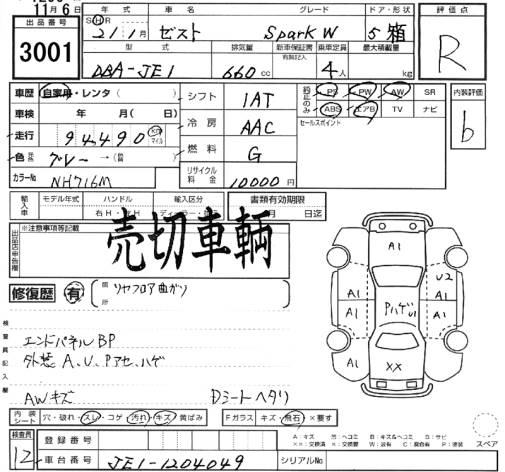 11月6日
出品番号 年式 車名 グレード ドア・形状 評価点
3001
S・H 21/1月 ゼスト Spark W 5 箱 R
型式 排気量 新車保証書 有無記入 乗車定員 最大積載量
DBA-JE1 660cc 4人 kg
車歴 自家用・レンタ( ) シフト 1AT 純正のみ PS PW AW SR 内装評価
車検 年 月(日) 冷房 AAC ABS エアB TV ナビ b
走行 94,490 km マイル セールスポイント
色 元色 グレー→(替色 ) 燃料 G
カラーNo NH716M リサイクル料金 10000円
輸入車 モデル年式 ハンドル 輸入区分 書類有効期限
右H・左H ディーラー・ 月 日迄
出品店申告欄 ※注意事項等記載
売切車輌
修復歴 有 箇所 リヤフロア曲ガリ
検査員記入欄
エンドパネルBP
外装 A、U、Pアセ、ハゲ
AWキズ Dシートヘタリ
A1
U2
A1 A1
A1 Pハゲ U1 A1
XX
内装シート 穴・破れ・スレ・コゲ 汚れ・キズ・黄ばみ Fガラス キズ・飛石・×要す
検査員 12 登録番号
車台番号 JE1-1204049 シリアルNo
A:キズ U:ヘコミ B:キズ&ヘコミ S:サビ
××:交換済 ×:交換要 W:波有 C:腐食有 P:塗装
スペア